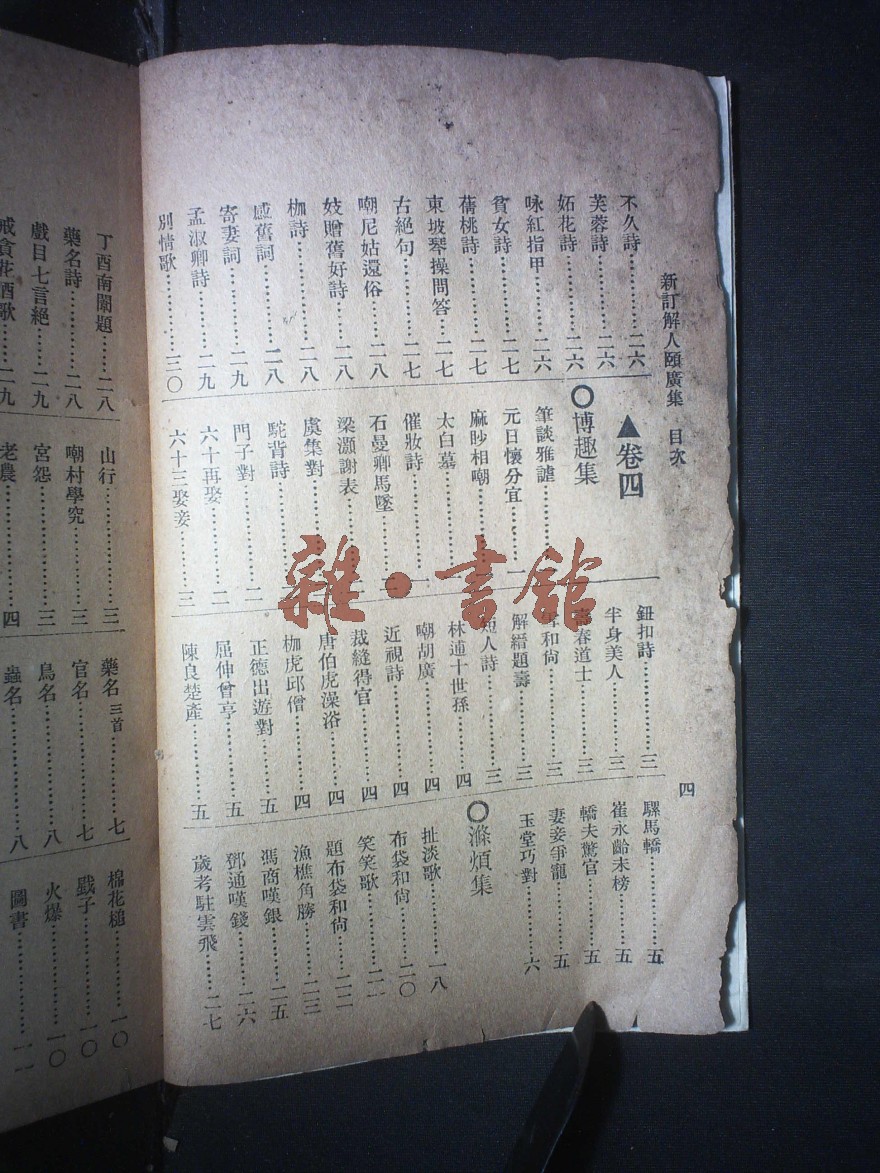 新訂解人頤廣集 目次
四
不久詩⋯⋯⋯二六
芙蓉詩⋯⋯⋯二六
妬花詩⋯⋯⋯二六
咏紅指甲⋯⋯二六
貧女詩⋯⋯⋯二七
蒨桃詩⋯⋯⋯二七
東坡琴操問答⋯二七
古絕句⋯⋯⋯二七
嘲尼姑還俗⋯⋯二八
妓贈舊好詩⋯⋯二八
枷詩⋯⋯⋯二八
感舊詞⋯⋯⋯二八
寄妻詞⋯⋯⋯二九
孟淑卿詩⋯⋯二九
別情歌⋯⋯⋯三〇
▲卷四
〇博趣集
筆談雅謔⋯⋯⋯一
元日懷分宜⋯⋯一
麻眇相嘲⋯⋯⋯一
太白墓⋯⋯⋯一
催妝詩⋯⋯⋯一
石曼卿馬墜⋯⋯
梁灝謝表⋯⋯⋯二
虞集對⋯⋯⋯二
駝背詩⋯⋯⋯二
門子對⋯⋯⋯二
六十再娶⋯⋯⋯二
六十三娶妾⋯⋯三
鈕扣詩⋯⋯⋯三
半身美人⋯⋯⋯三
春道士⋯⋯⋯三
和尙⋯⋯⋯三
解縉題壽⋯⋯⋯三
短人詩⋯⋯⋯三
林逋十世孫⋯⋯四
嘲胡廣⋯⋯⋯四
近視詩⋯⋯⋯四
裁縫得官⋯⋯⋯四
唐伯虎澡浴⋯⋯四
枷虎邱僧⋯⋯⋯四
正德出遊對⋯⋯五
屈伸曾亨⋯⋯⋯五
陳良楚產⋯⋯⋯五
騾馬轎⋯⋯⋯五
崔永齡未榜⋯⋯五
轎夫驚官⋯⋯⋯五
妻妾爭寵⋯⋯⋯五
玉堂巧對⋯⋯⋯六
〇滌煩集
扯淡歌⋯⋯⋯一八
布袋和尙⋯⋯⋯二〇
題布袋和尙⋯⋯二二
笑笑歌⋯⋯⋯二一
漁樵角勝⋯⋯⋯二三
馮商嘆銀⋯⋯⋯二五
鄧通嘆錢⋯⋯⋯二六
歲考駐雲飛⋯⋯二七
丁酉南闈題⋯⋯二八
藥名詩⋯⋯⋯二八
戲目七言絕⋯⋯二九
戒貪花酒歌⋯⋯二九
山行⋯⋯⋯三
嘲村學究⋯⋯⋯三
宮怨⋯⋯⋯三
老農⋯⋯⋯四
藥名三首⋯⋯⋯七
官名⋯⋯⋯七
鳥名⋯⋯⋯八
蟲名⋯⋯⋯八
棉花槌⋯⋯⋯一〇
戲子⋯⋯⋯一〇
火爆⋯⋯⋯一〇
圖書⋯⋯⋯一一
雜·書舘